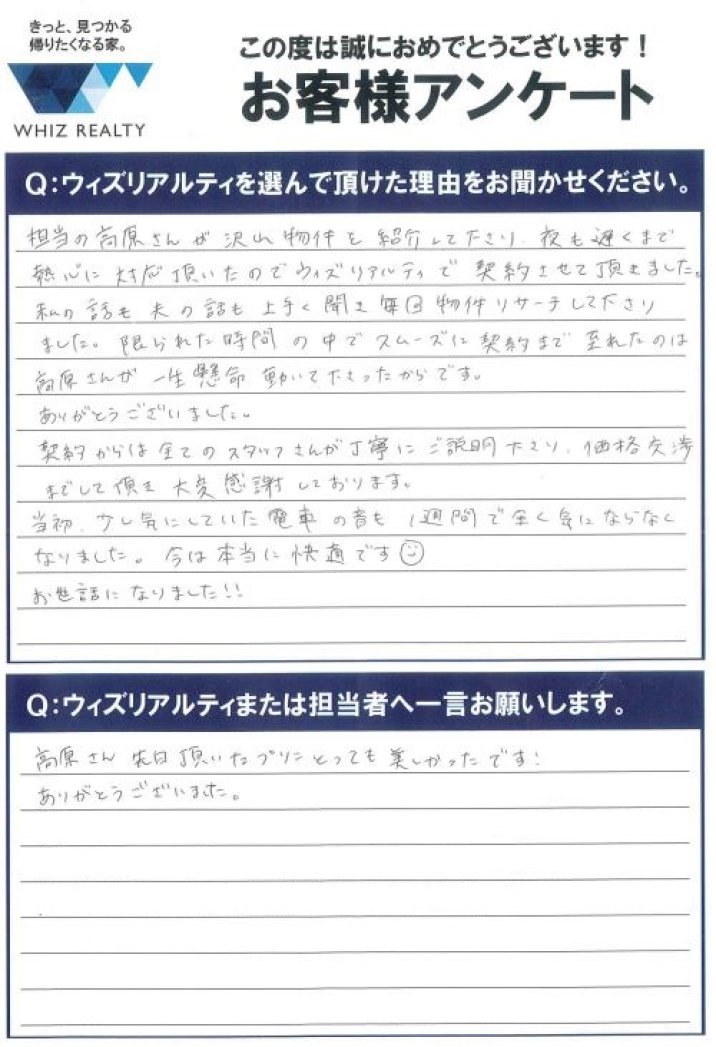 きっと、見つかる
帰りたくなる家。
WHIZ REALTY
この度は誠におめでとうございます！
お客様アンケート
Q：ウィズリアルティを選んで頂けた理由をお聞かせください。
担当の高原さんが沢山物件を紹介して下さり、夜も遅くまで
熱心に対応頂いたのでウィズリアルティで契約させて頂きました。
私の話も夫の話も上手く聞き毎回物件リサーチして下さり
ました。限られた時間の中でスムーズに契約まで至れたのは
高原さんが一生懸命動いて下さったからです。
ありがとうございました。
契約からは全てのスタッフさんが丁寧にご説明下さり、価格交渉
までして頂き大変感謝しております。
当初、少し気にしていた電車の音も1週間で全く気にならなく
なりました。今は本当に快適です☺
お世話になりました!!
Q：ウィズリアルティまたは担当者へ一言お願いします。
高原さん先日頂いたプリンとっても美しかったです!
ありがとうございました。